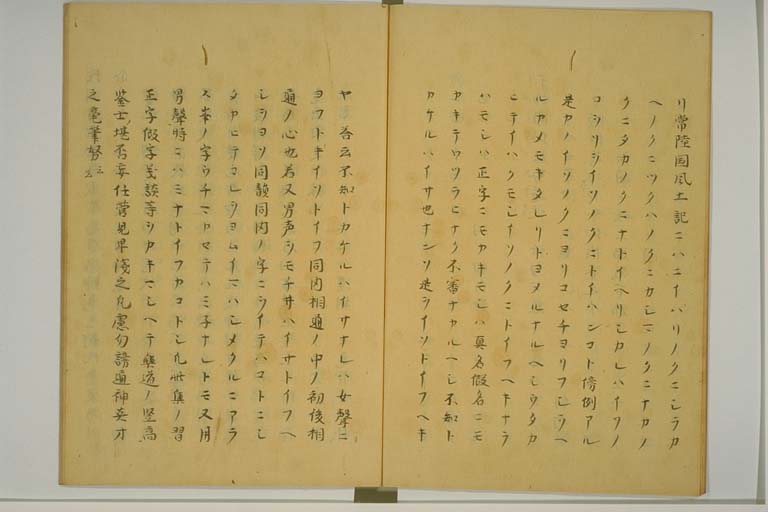 リ常陸国風土記ニハニイバリノクニシラカ
ヘノクニツクハノクニカシマノクニナカノ
クニタカノクニナトイヘリシカレハイソノ
コシリシイソノクニトイハンコト傍例アル
是カノイソノクニヨリコセチヨリフシラヘ
ルカメモキタレリトヨメルナルヘシウタカ
ヒテイハクモシイソノクニトイフヘキナラ
ハモシハ正字ニモカキモシハ真名假名ニモ
カキテウツラヒナク不審ナカルヘシ不知ト
カケルハイサ也ナンソ是ヲイソトイフヘキ
ヤ 答云不知トカケルハイサナレハ女聲ニ
ヨフトキイソトイフ同内相通ノ中ノ初後相
通ノ心也若又男声シモチ井ハイサトイフヘ
シシヨソ同韻同内ノ字ニライテハコトニシ
タカヒテコレシヨムイマハシメタルニアラ
ス峯ノ字ウチマカセテハミ子ナレトモ又用
男聲時ニハミナトイフカコトシ凡此集ノ習
正字假字義談等シカキマシヘテ興道ノ堅高
鉴士堪否妄任菅見卑淺之凡慮勿謗通神英才
之毫筆努々云云